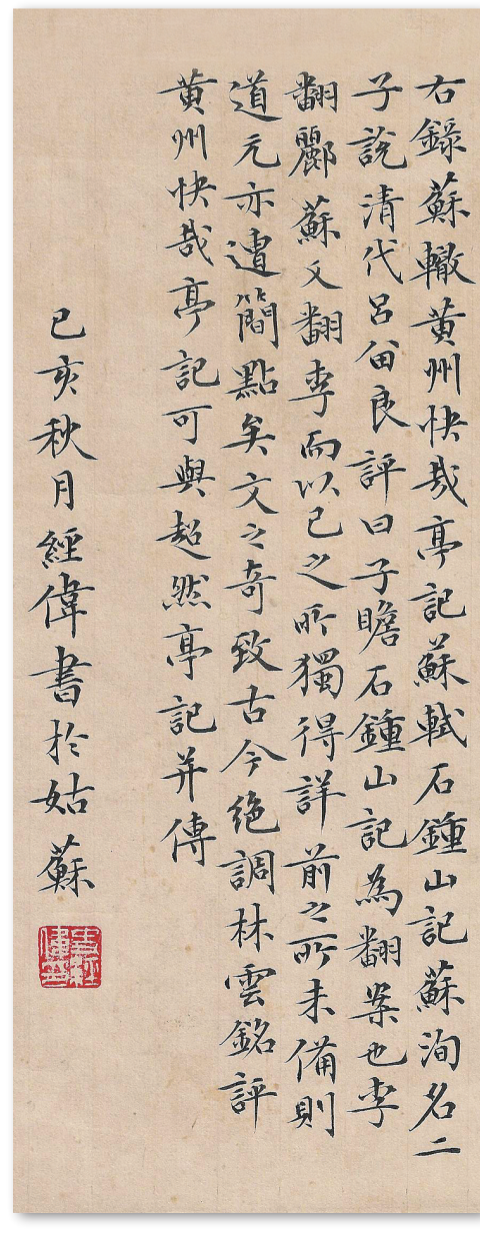 右錄蘇轍黃州快哉亭記蘇軾石鍾山記蘇洵名二
子說清代呂留良評曰子瞻石鍾山記為翻案也李
翻酈蘇又翻李而以己之所獨得詳前之所未備則
道元亦遭簡點矣文之奇致古今絕調林雲銘評
黃州快哉亭記可與超然亭記并傳
己亥秋月經偉書於姑蘇